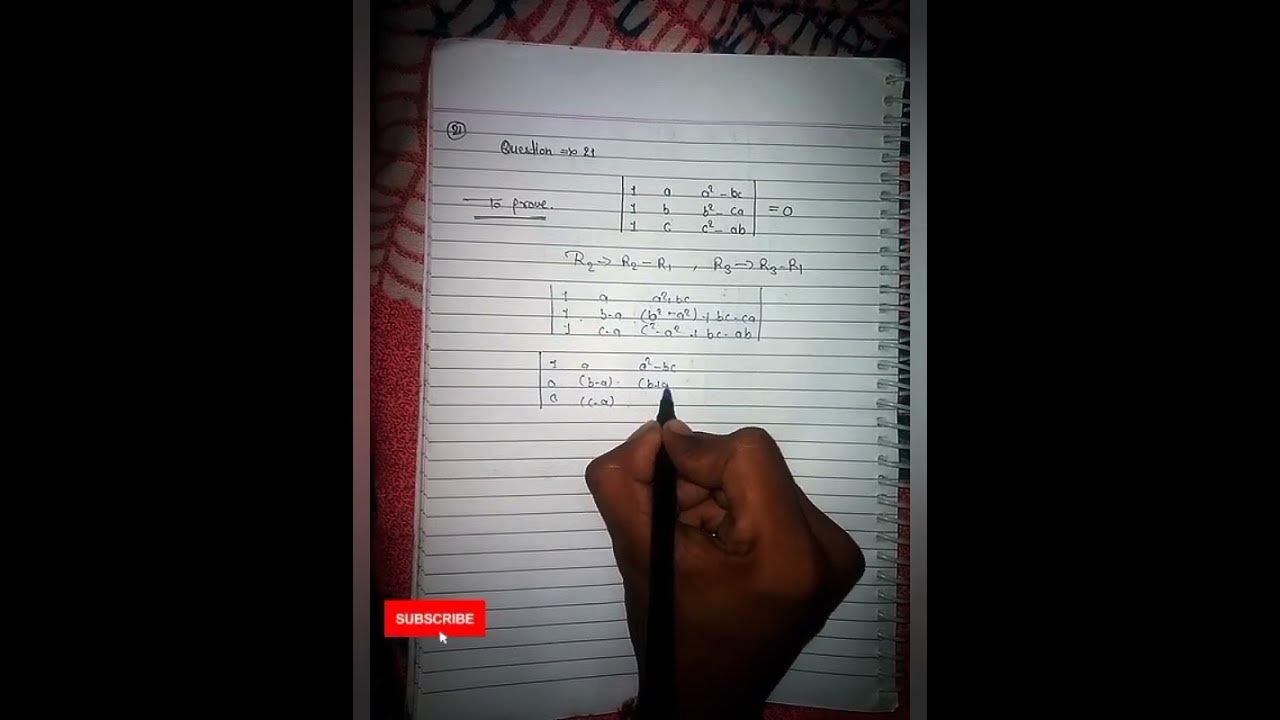 21
Question => 21
To prove. | 1 a a² - bc |
| 1 b b² - ca | = 0
| 1 c c² - ab |
R₂ → R₂ - R₁ , R₃ → R₃ - R₁
| 1 a a² + bc |
| 1 b-a (b² - a²) + bc - ca |
| 1 c-a c² - a² + bc - ab |
| 1 a a² - bc
| 0 (b-a) (b+a
| 0 (c-a)
SUBSCRIBE